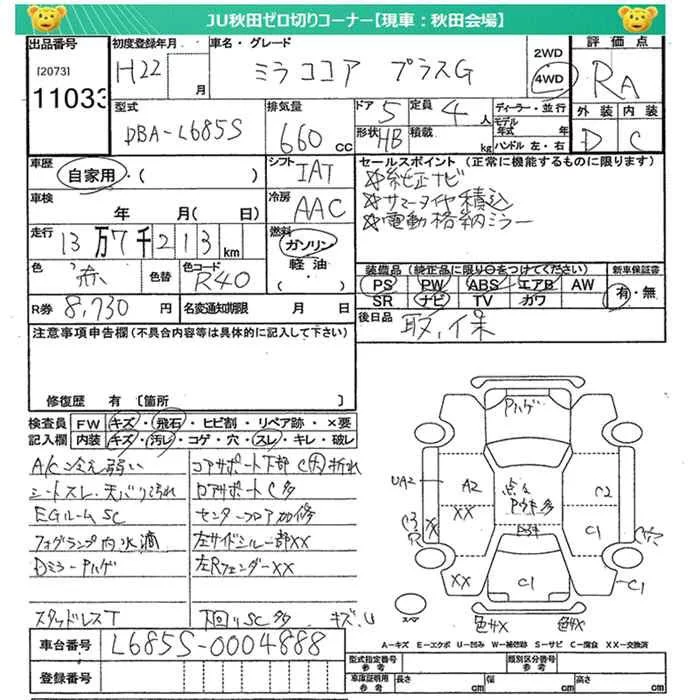 JU秋田ゼロ切りコーナー【現車:秋田会場】
出品番号 初度登録年月 車名・グレード 評価点
[2073] H22 月 ミラココア プラスG 2WD 4WD RA
11033
型式 排気量 ドア 5 定員 4 人 ディーラー・並行 外装 内装
DBA-L685S 660 cc 形状 HB 積載 kg モデル年式 年 ハンドル 左・右 D C
車歴 自家用・( ) シフト IAT セールスポイント(正常に機能するものに限ります)
純正ナビ
サマータイヤ積込
電動格納ミラー
車検 年 月( 日) 冷房 AAC
走行 13万7千213km 燃料 ガソリン 軽油・
色 赤 色替 色コード R40
装備品(純正品に限り○をつけてください) 新車保証書
PS PW ABS エアB AW 有・無
SR ナビ TV カワ
R券 8,730円 名変通知期限 月 日 後日品 取,保
注意事項申告欄(不具合内容等は具体的に記入して下さい)
修復歴 有 [箇所 ]
検査員記入欄 FW キズ・飛石・ヒビ割・リペア跡・×要
内装 キズ・汚レ・コゲ・穴・スレ・キレ・破レ
A/C冷え弱い コアサポート下部C大折れ
シートスレ.天バリ汚れ ロアサポートC多
EGルームSC センターフロア加修
フォグランプ内水滴 左サイドシル一部XX
Dミラーハゲ 左RフェンダーXX
スタッドレスT 下回りSC多 キズ,U
ハゲ
UA2 A2 XX 点々 多 C2
XX C1 C1
C1
スペア 色替X 色替X
A=キズ E=エクボ U=凹み W=補修跡 S=サビ C=腐食 XX=交換済
車台番号 L685S-0004888
登録番号
型式指定番号 参考 類別区分番号 参考
車庫証明用 参考 長さ cm 幅 cm 高さ cm